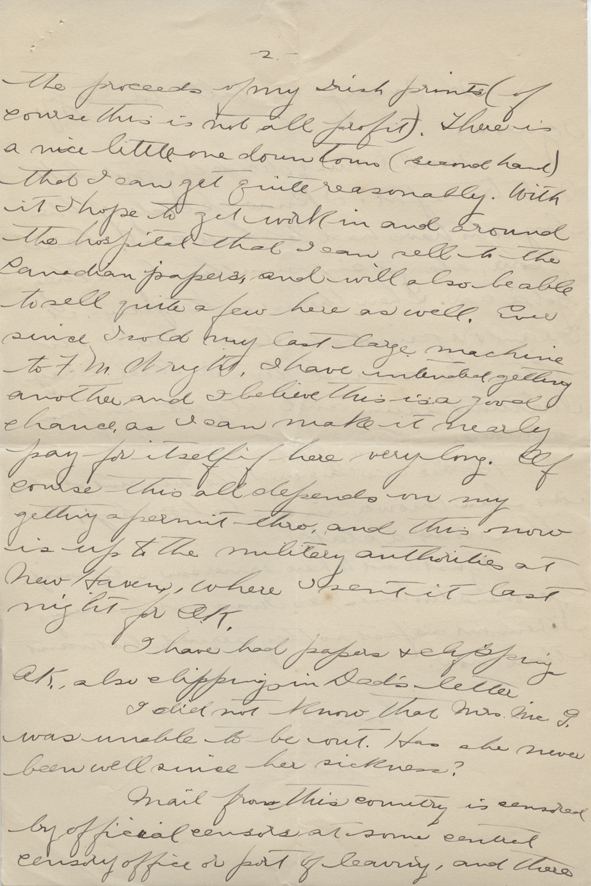 -2-
the proceeds of my Irish prints (of
course this is not all profit). There is
a nice little one down town (second hand)
that I can get quite reasonably. With
it I hope to get work in and around
the hospital that I can sell to the
Canadian papers, and will also be able
to sell quite a few here as well. Ever
since I sold my last large machine
to F. M. Wright, I have intended getting
another and I believe this is a good
chance, as I can make it nearly
pay for itself if here very long. Of
course this all depends on my
getting a permit thro, and this now
is up to the military authorities at
New Haven, where I sent it last
night for OK.
I have had papers & clipping
OK., also clippings in Dad's letter
I did not know that Mrs. Mc G.
was unable to be out. Has she never
been well since her sickness?
Mail from this country is censored
by official censors at some central
censory office or port of leaving, and there